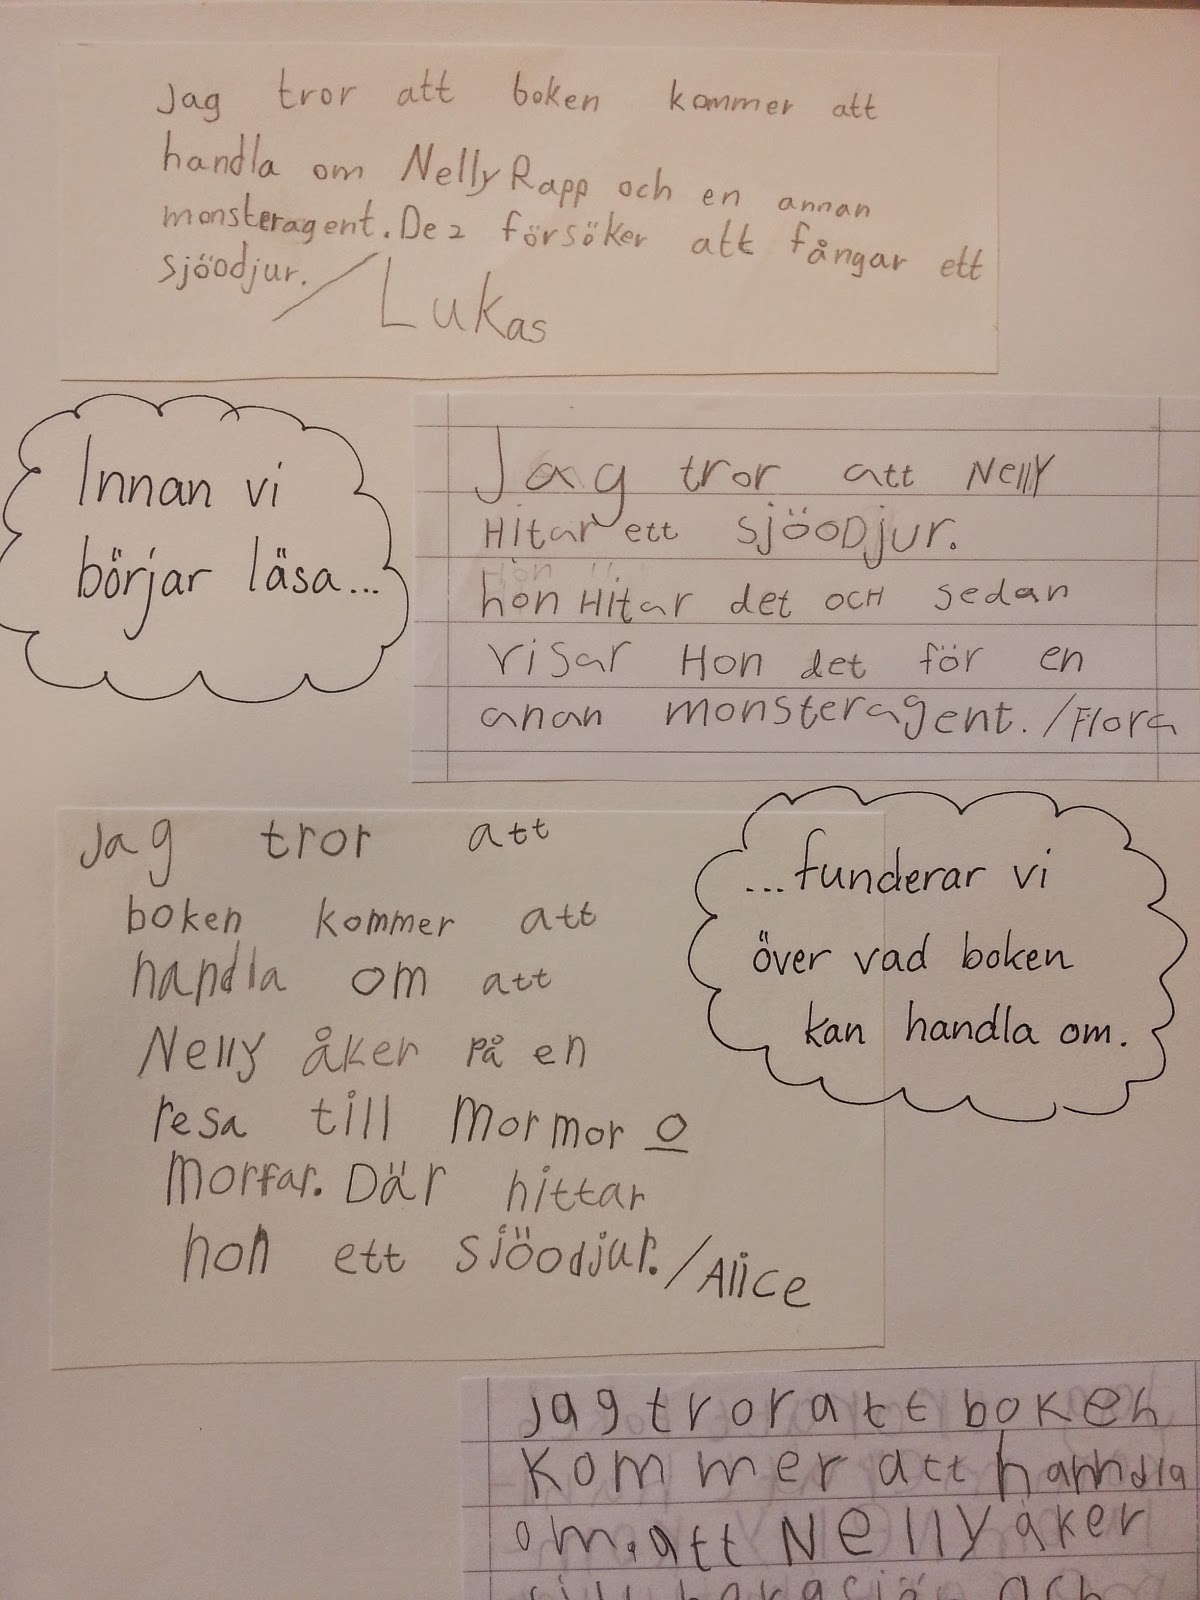 Jag tror att boken kommer att
handla om Nelly Rapp och en annan
monsteragent. De 2 försöker att fångar ett
sjöodjur. / Lukas
Innan vi
börjar läsa...
Jag tror att Nelly
Hitar ett sjöoDjur.
hon Hitar det ocH sedan
visar Hon det för en
anan monsteragent. /Flora
...funderar vi
över vad boken
kan handla om.
Jag tror att
boken kommer att
handla om att
Nelly åker på en
resa till Mormor o
morfar. Där hittar
hon ett sjöodjur. /Alice
jag tror att boken
Kommer att hanndla
om. att Nelly åker
och